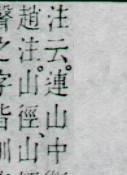 注云。連山中
趙注。山徑、山
聲之字皆訓